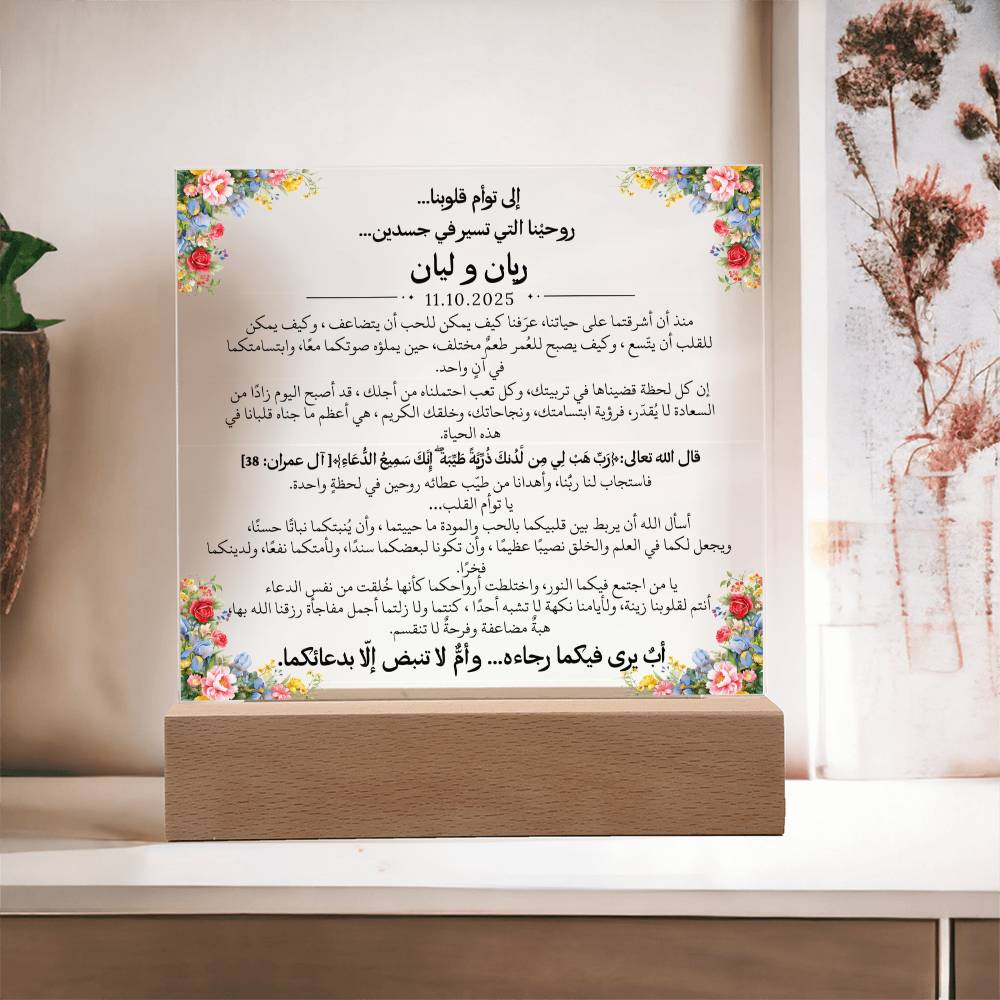 إلى توأم قلوبنا...
روحيْنا التي تسير في جسدين...
ريان و ليان
11.10.2025
منذ أن أشرقتما على حياتنا، عرَفنا كيف يمكن للحب أن يتضاعف ، وكيف يمكن
للقلب أن يتّسع ، وكيف يصبح للعُمر طعمٌ مختلف، حين يملؤه صوتكما معًا، وابتسامتكما
في آنٍ واحد.
إن كل لحظة قضيناها في تربيتك، وكل تعب احتملناه من أجلك ، قد أصبح اليوم زادًا من
السعادة لا يُقدّر، فرؤية ابتسامتك، ونجاحاتك، وخلقك الكريم ، هي أعظم ما جناه قلبانا في
هذه الحياة.
قال الله تعالى:﴿رَبِّ هَبْ لِي مِن لَّدُنكَ ذُرِّيَّةً طَيِّبَةً ۖ إِنَّكَ سَمِيعُ الدُّعَاءِ﴾[ آل عمران: 38]
فاستجاب لنا ربُنا، وأهدانا من طيّب عطائه روحين في لحظةٍ واحدة.
يا توأم القلب...
أسأل الله أن يربط بين قلبيكما بالحب والمودة ما حييتما ، وأن يُنبتكما نباتًا حسنًا،
ويجعل لكما في العلم والخلق نصيبًا عظيمًا ، وأن تكونا لبعضكما سندًا، ولأمتكما نفعًا، ولدينكما
فخرًا.
يا من اجتمع فيكما النور، واختلطت أرواحكما كأنها خُلقت من نفس الدعاء
أنتم لقلوبنا زينة، ولأيامنا نكهة لا تشبه أحدًا ، كنتما ولا زلتما أجمل مفاجأة رزقنا الله بها،
هبةٌ مضاعفة وفرحةٌ لا تنقسم.
أبٌ يرى فيكما رجاءه... وأمٌّ لا تنبض إلّا بدعائكما.